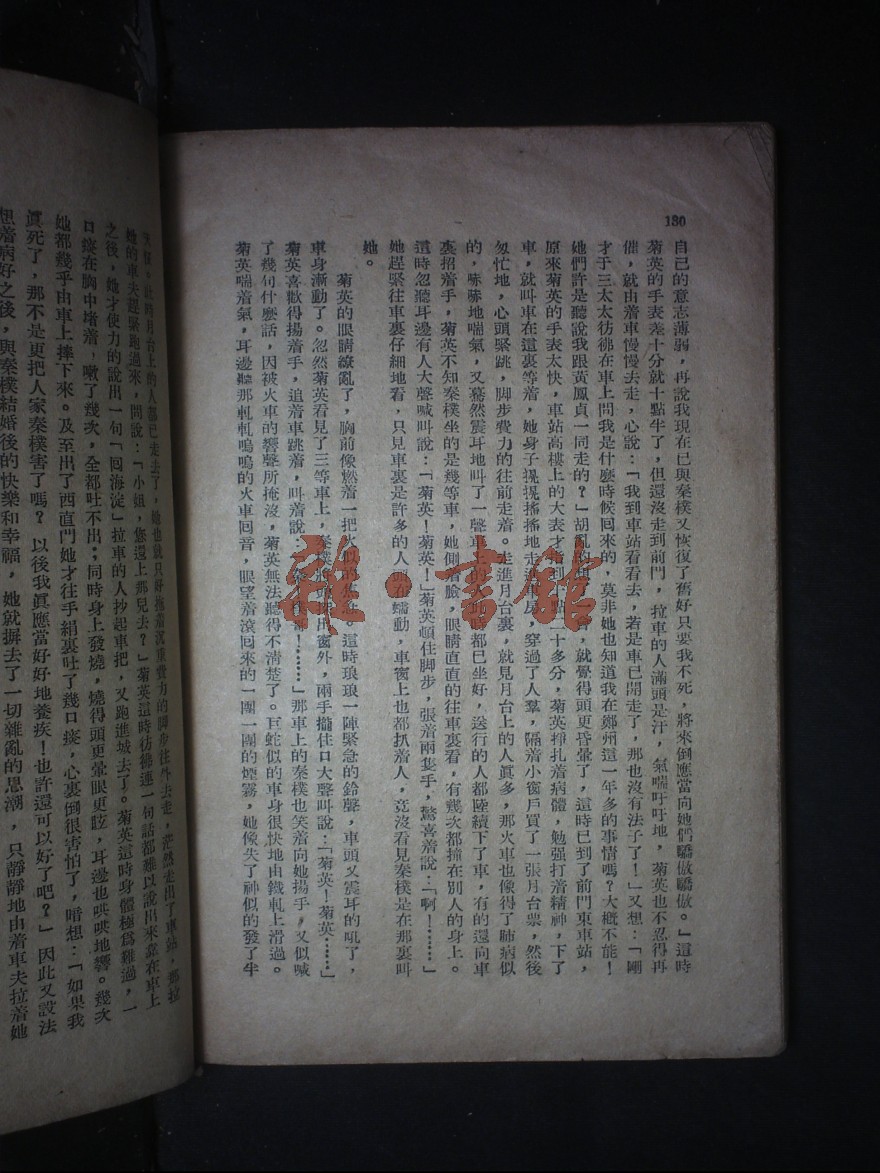 130
自己的意志薄弱，再說我現在已與秦樸又恢復了舊好只要我不死，將來倒應當向她們驕傲驕傲。」這時
菊英的手表差十分就十點半了，但還沒走到前門，拉車的人滿頭是汗，氣喘吁吁地，菊英也不忍得再
催，就由着車慢慢去走，心說：「我到車站看看去，若是車已開走了，那也沒有法子了！」又想：「剛
才于三太太彷彿在車上問我是什麼時候回來的，莫非她也知道我在鄭州這一年多的事情嗎？大概不能！
她們許是聽說我跟黃鳳貞一同走的？」胡亂的想了一，就覺得頭更昏暈了，這時已到了前門東車站，
原來菊英的手表太快，車站高樓上的大表才指到點二十多分，菊英掙扎着病體，勉强打着精神，下了
車，就叫車在這裏等着，她身子搖搖地走進房，穿過了人羣，隔着小窗戶買了一張月台票，然後
匆忙地，心頭緊跳，脚步費力的往前走着。走進月台裏，就見月台上的人眞多，那火車也像得了肺病似
的，哧哧地喘氣，又驀然震耳地叫了一聲車上的人都已坐好，送行的人都陸續下了車，有的還向車
裏招着手，菊英不知秦樸坐的是幾等車，她側着臉，眼睛直直的往車裏看，有幾次都撞在別人的身上。
這時忽聽耳邊有人大聲喊叫說：「菊英！菊英！」菊英頓住脚步，張着兩隻手，驚喜着說：「啊！……」
她趕緊往車裏仔細地看，只見車裏是許多的人頭在蠕動，車窗上也都扒着人，竟沒看見秦樸是在那裏叫
她。
菊英的眼睛繚亂了，胸前像燃着一把火似的這時琅琅一陣緊急的鈴聲，車頭又震耳的吼了，
車身漸動了。忽然菊英看見了三等車上，秦樸將出窗外，兩手攏住口大聲叫說：「菊英！菊英……」
菊英喜歡得揚着手，追着車跳着，叫着說：「秦……」那車上的秦樸也笑着向她揚手，又似喊
了幾句什麼話，因被火車的響聲所掩沒，菊英無法聽得不清楚了。巨蛇似的車身很快地由鐵軋上滑過。
菊英喘着氣，耳邊聽那軋軋嗚嗚的火車回音，眼望着滾囘來的一團一團的煙霧，她像失了神似的發了半
天怔。此時月台上的人都已走去了，她也就只好拖着沉重費力的脚步往外去走，茫然走出了車站，那拉
她的車夫趕緊跑過來，問說：「小姐，您還上那兒去？」菊英這時彷彿連一句話都難以說出來靠在車上
之後，她才使力的說出一句「囘海淀」拉車的人抄起車把，又跑進城去了。菊英這時身體極爲難過，一
口痰在胸中堵着，嗽了幾次，全都吐不出；同時身上發燒，燒得頭更暈眼更眩，耳邊也哄哄地響。幾次
她都幾乎由車上摔下來。及至出了西直門她才往手絹裏吐了幾口痰，心裏倒很害怕了，暗想：「如果我
眞死了，那不是更把人家秦樸害了嗎？以後我眞應當好好地養疾！也許還可以好了吧？」因此又設法
想着病好之後，與秦樸結婚後的快樂和幸福，她就摒去了一切雜亂的思潮，只靜靜地由着車夫拉着她
雜·書館